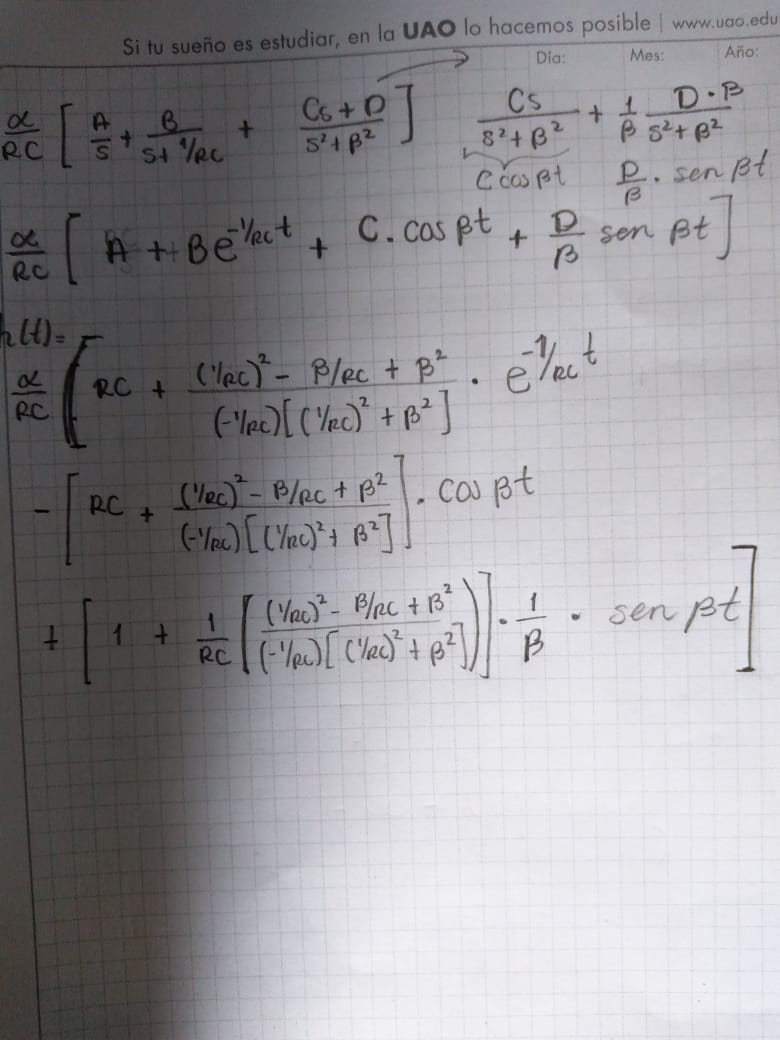 Si tu sueño es estudiar, en la UAO lo hacemos posible | www.uao.edu
Día: Mes: Año:
α/RC [ A/S + B/(S+1/RC) + (Cs + D)/(S²+β²) ] Cs/(S²+β²) + 1/β D·β/(S²+β²)
C cos βt D/β · sen βt
α/RC [ A + Be^(-1/RC t) + C. cos βt + D/β sen βt ]
h(t)=
α/RC [ RC + ((1/RC)² - β/RC + β²)/((-1/RC)[(1/RC)² + β²]) · e^(-1/RC t)
- [ RC + ((1/RC)² - β/RC + β²)/((-1/RC)[(1/RC)² + β²]) ] · cos βt
+ [ 1 + 1/RC [ ((1/RC)² - β/RC + β²)/((-1/RC)[(1/RC)² + β²]) ) ] · 1/β · sen βt ]